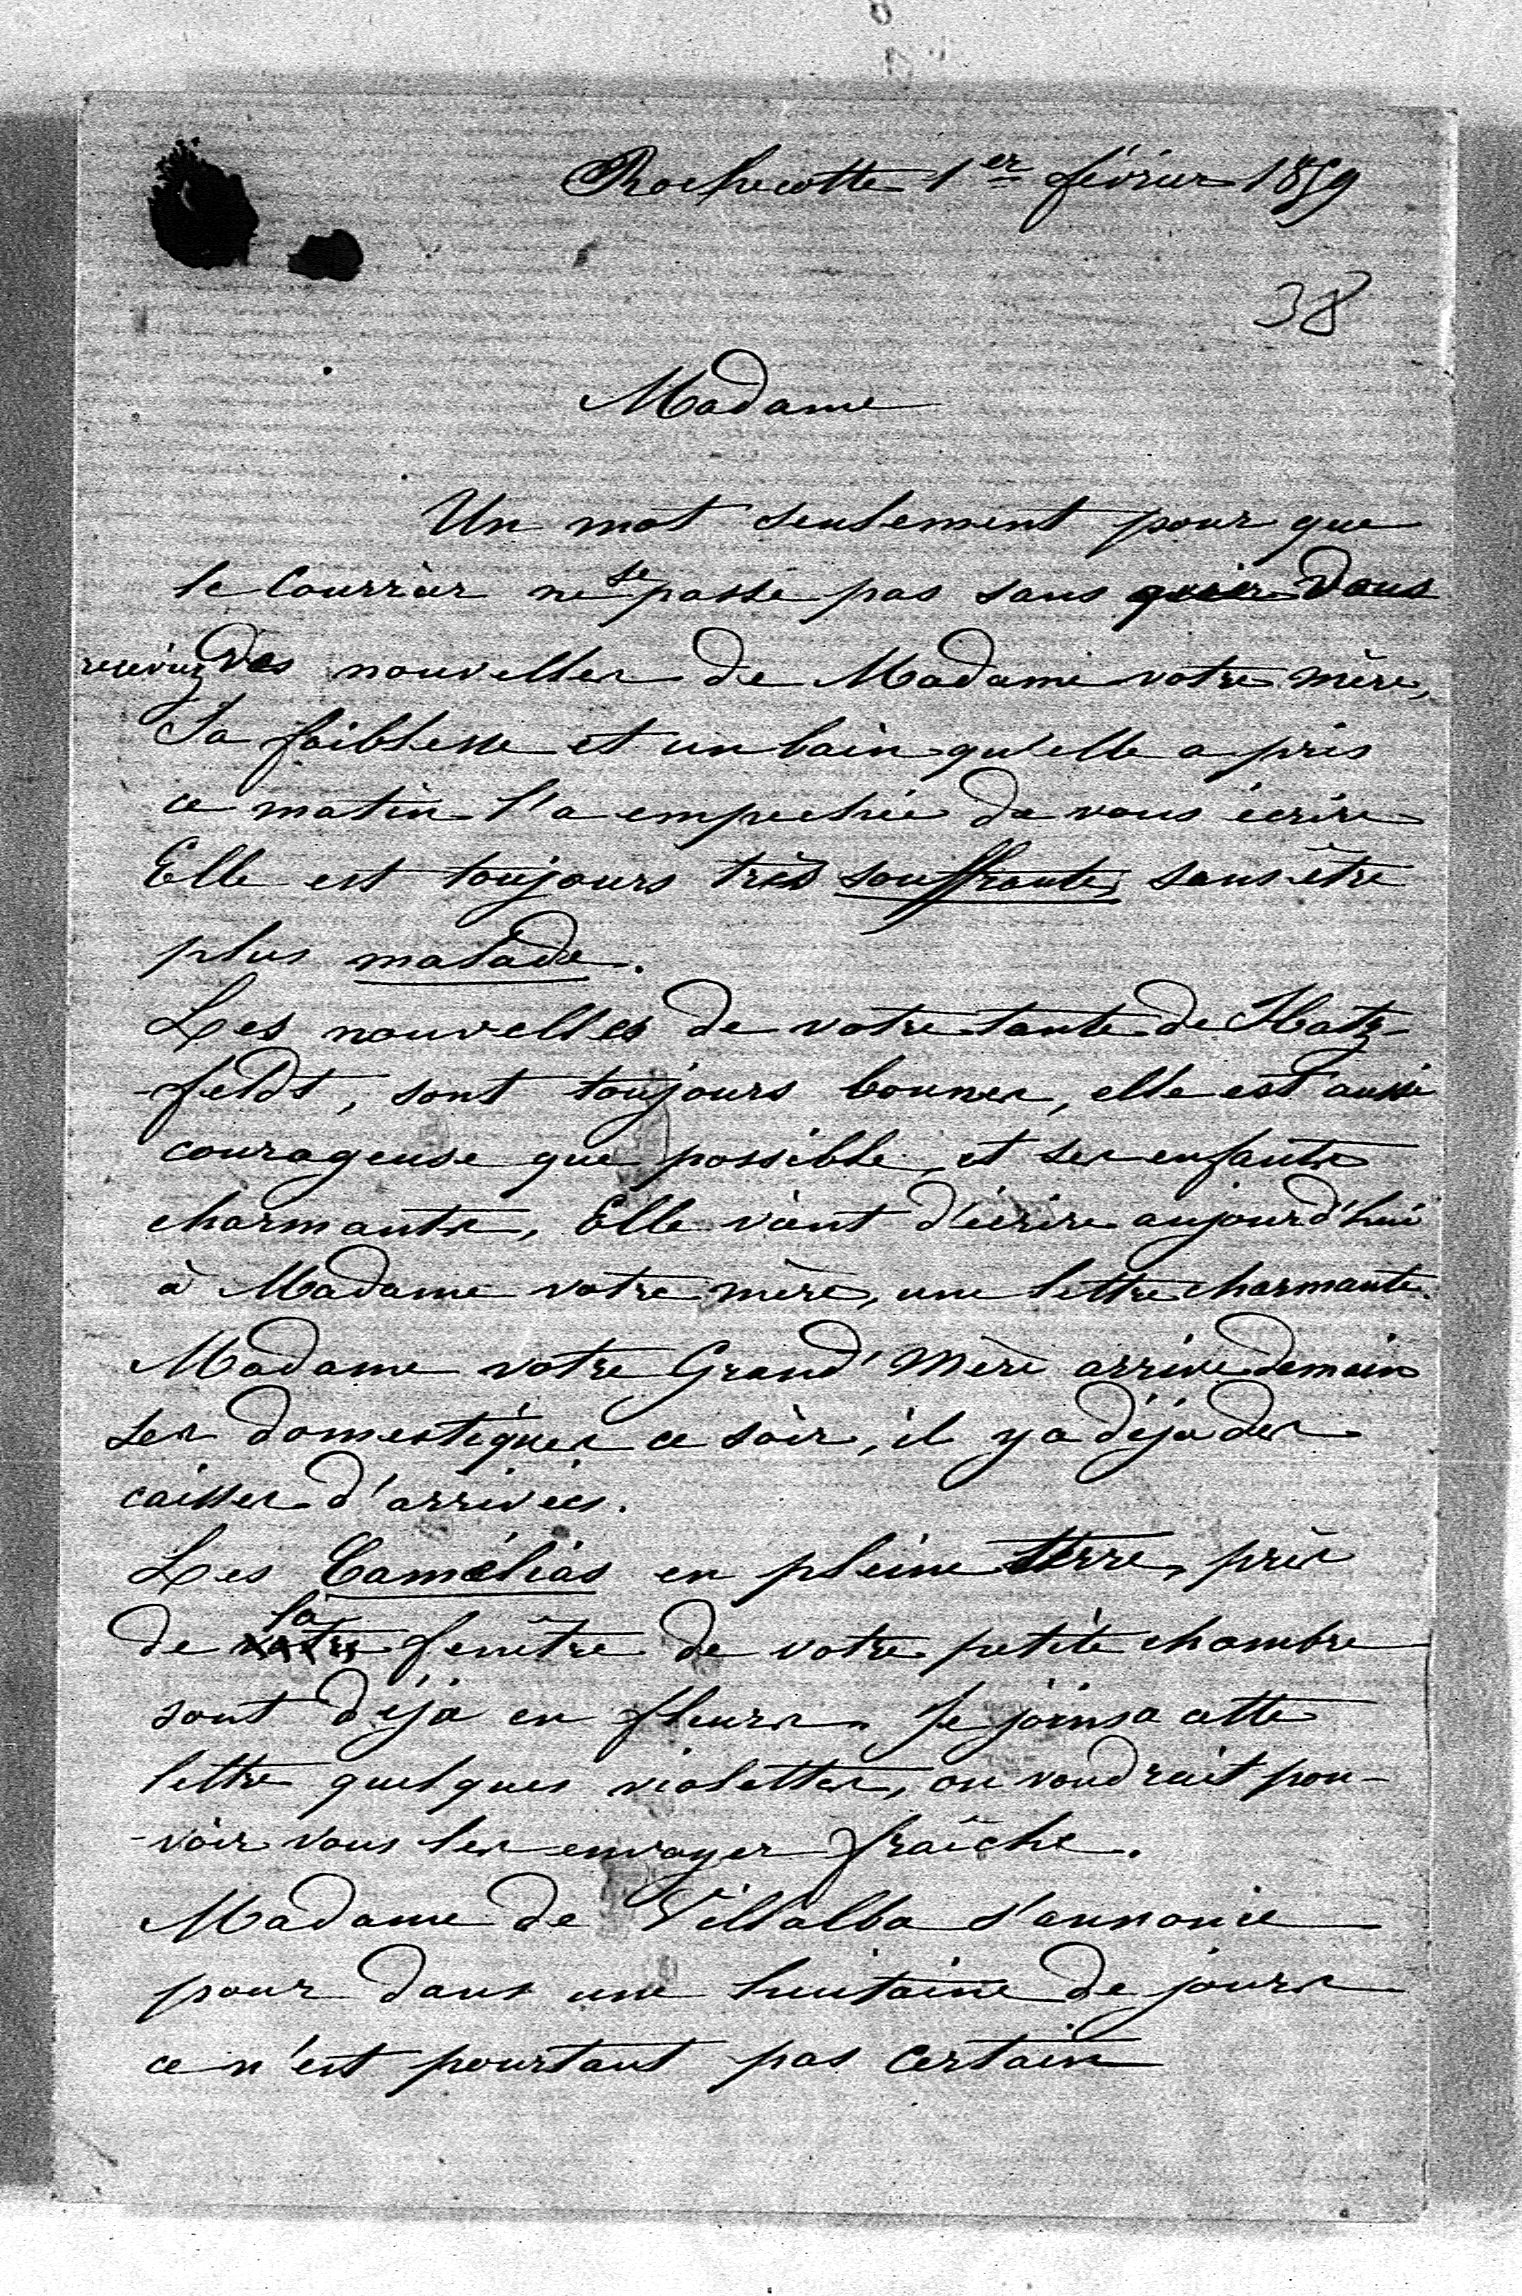 Rochecotte 1er février 1859
38
Madame
Un mot seulement pour que
le Courrier ne se passe pas sans que vous
receviez des nouvelles de Madame votre mère,
Sa faiblesse et un bain qu'elle a pris
ce matin l'a empechée de vous écrire
Elle est toujours très souffrante, sans être
plus malade.
Les nouvelles de votre tante de Hatz-
-feldt, sont toujours bonnes, elle est aussi
courageuse que possible, et ses enfants
charmants, Elle vient d'écrire aujourd'hui
à Madame votre mère, une lettre charmante.
Madame votre Grand' Mère arrive demain
ses domestiques ce soir, il y a déja des
caisses d'arrivées.
Les Camélias en pleine terre, près
de la fenêtre de votre petite chambre
sont déja en fleurs. Je joins a cette
lettre quelques violettes, on voudrait pou-
-voir vous les envoyer fraîche.
Madame de Villalba s'annonce
pour dans une huitaine de jours
ce n'est pourtant pas certain